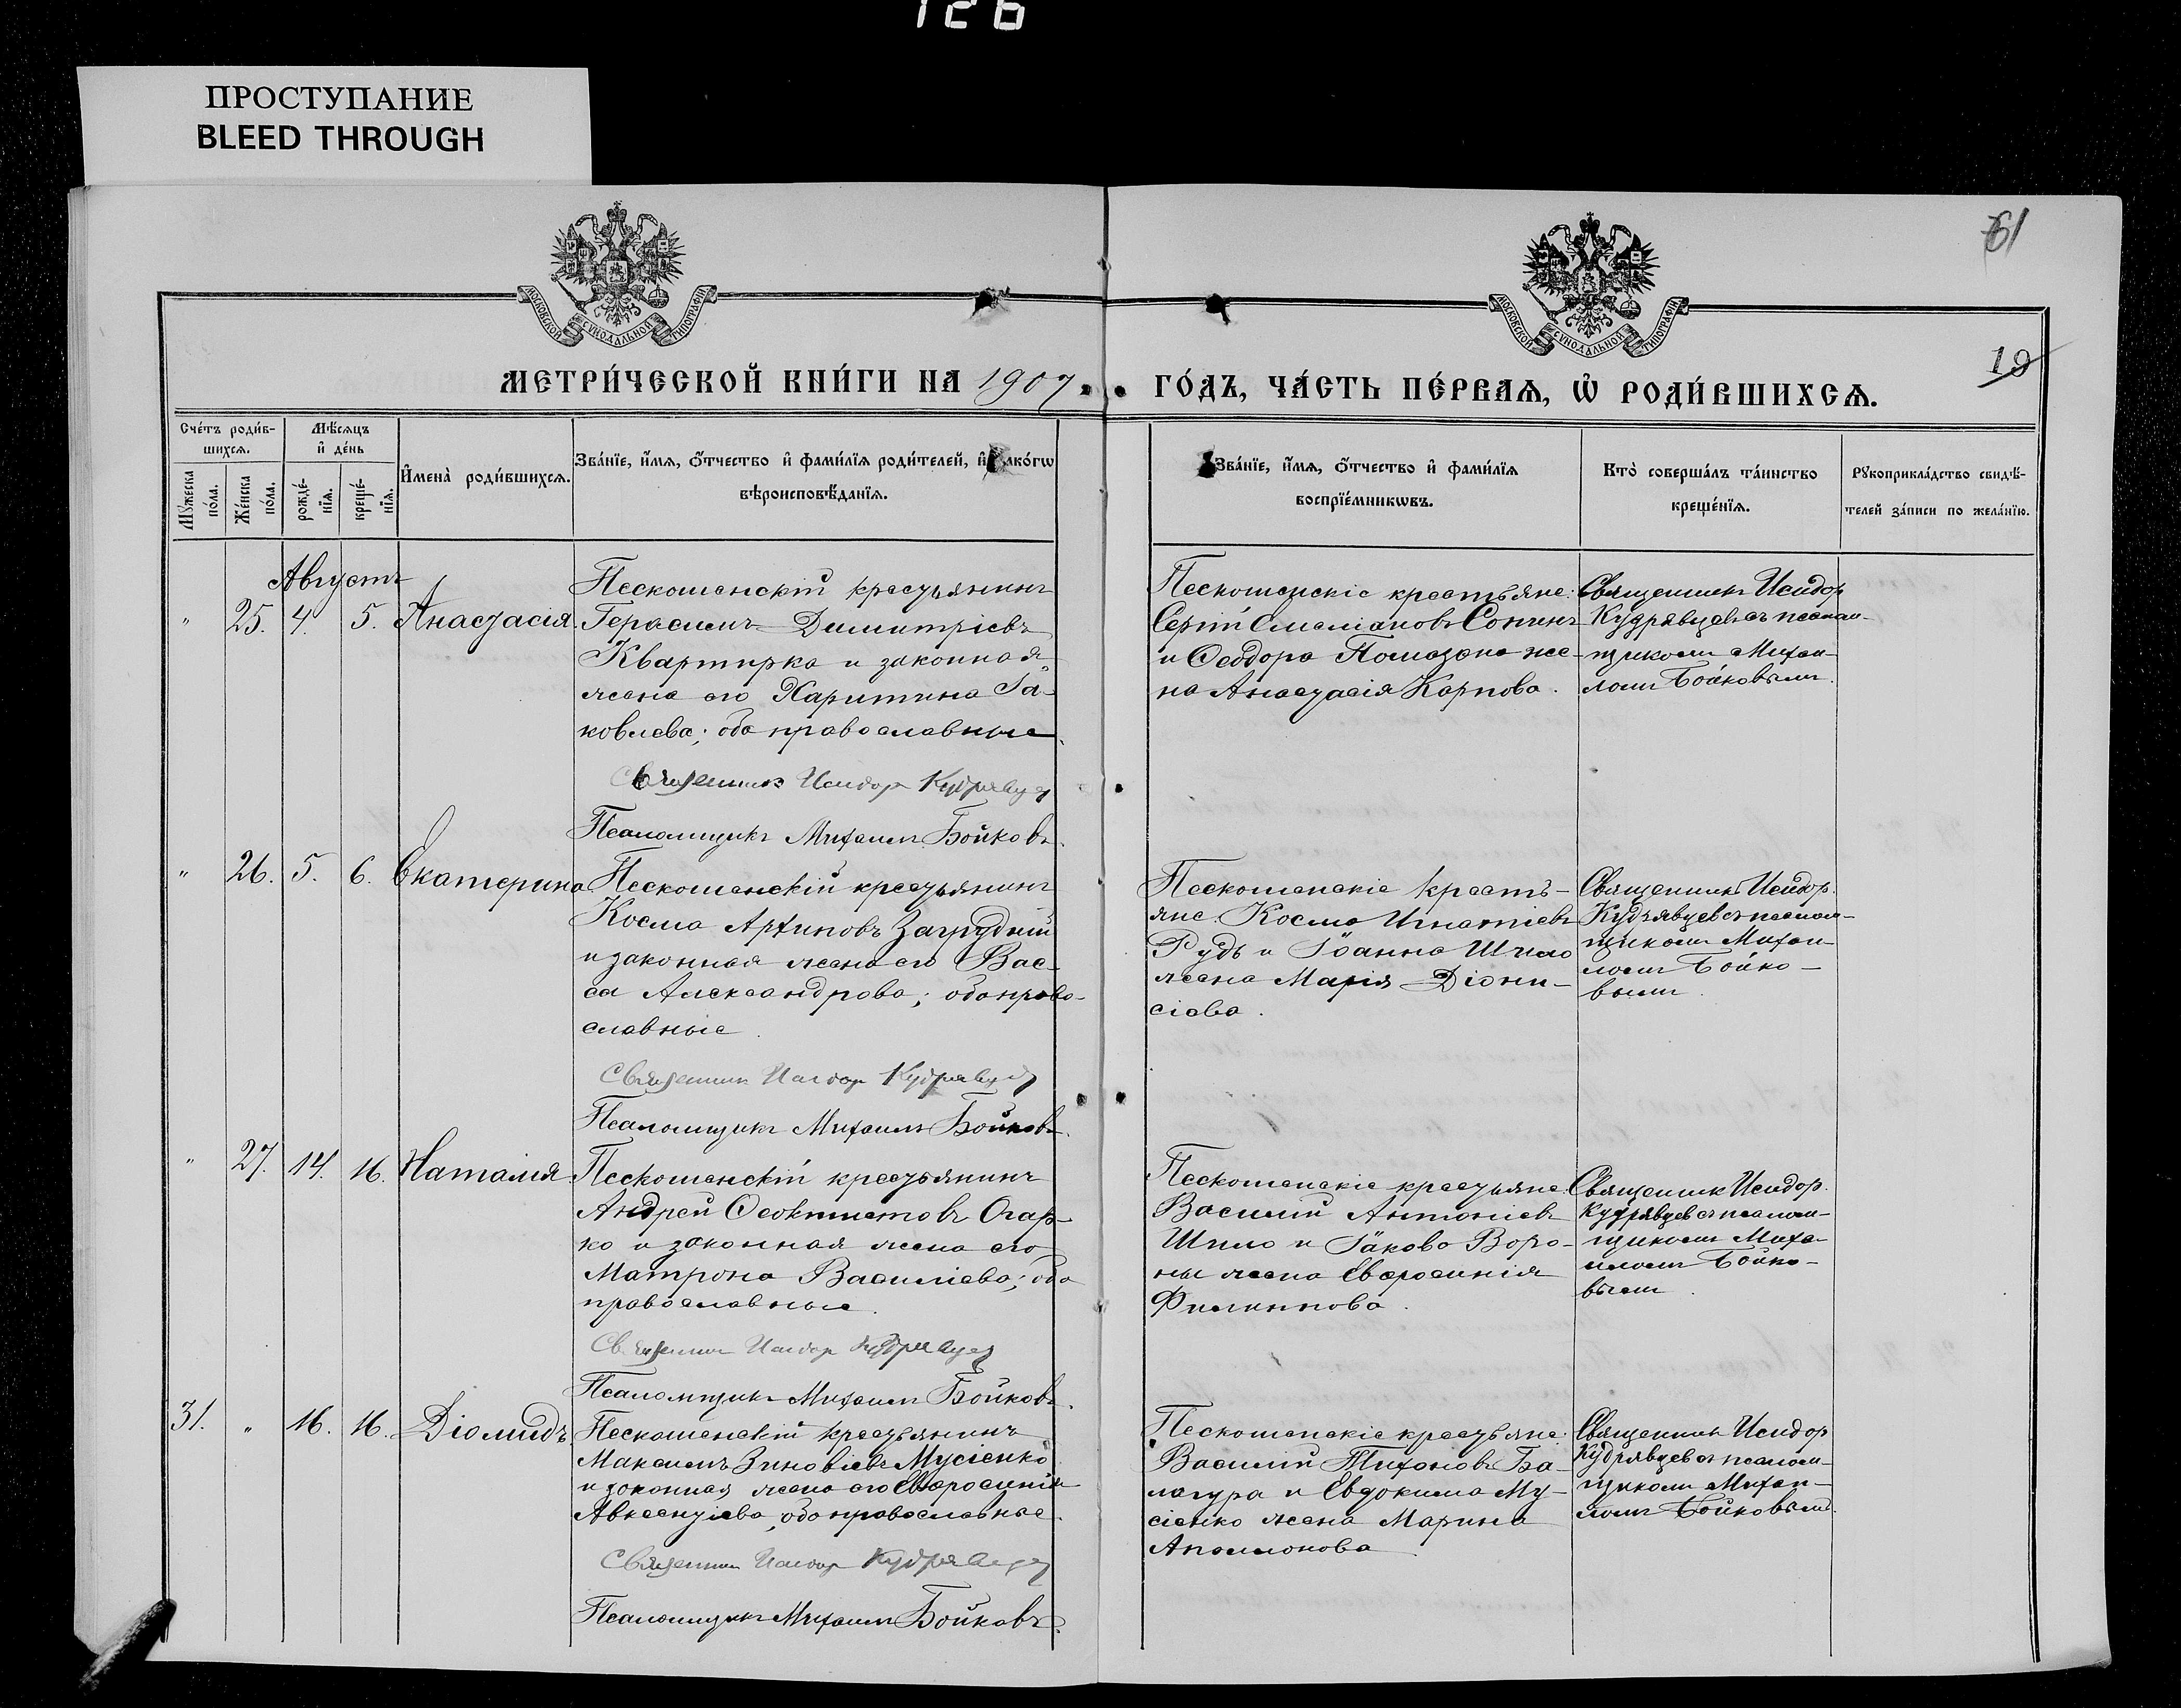 126
ПРОСТУПАНИЕ
BLEED THROUGH
61
19
МОСКОВСКОЙ СУНОДАЛЬНОЙ ТИПОГРАФІИ
МОСКОВСКОЙ СУНОДАЛЬНОЙ ТИПОГРАФІИ
МЕТРИ́ЧЕСКОЙ КНИ́ГИ НА 1907
ГО́ДЪ, ЧА́СТЬ ПЕ́РВАѦ, Ѡ РОДИ́ВШИХСѦ.
Сче́тъ роди́в-
шихсѧ.
Мѣ́сѧцъ
и҆ де́нь
Мꙋ́жеска по́ла.
Же́нска по́ла.
рожде́-нїѧ.
креще́-нїѧ.
И҆мена̀ роди́вшихсѧ.
Зва́нїе, и҆́мѧ, ѻ҆́тчество и҆ фами́лїѧ роди́телей, и҆ како́гѡ
вѣроисповѣ́данїѧ.
Зва́нїе, и҆́мѧ, ѻ҆́тчество и҆ фами́лїѧ
воспрїе́мникѡвъ.
Кто̀ соверша́лъ та́инство
креще́нїѧ.
Рꙋкоприкла́дство свидѣ́-
телей за́писи по жела́нїю.
Августъ
" 25. 4. 5. Анастасія.
Пескошанскій крестьянинъ
Герасимъ Димитріевъ
Квартирка и законная
жена его Харитина Іа-
ковлева; оба православные.
Священник Исидор Кудрявцев
Псаломщикъ Михаилъ Бойковъ.
Пескошанскіе крестьяне:
Сергій Емеліановъ Сонинъ
и Ѳеодора Помазана же-
на Анастасія Карпова.
Священникъ Исидор
Кудрявцевъ съ псалом-
щикомъ Михаи-
ломъ Бойковымъ.
" 26. 5. 6. Екатерина
Пескошанскій крестьянинъ
Косма Архиповъ Загрудній
и законная жена его Вас-
са Александрова; оба право-
славные.
Священник Исидор Кудрявцев
Псаломщикъ Михаилъ Бойковъ.
Пескошанскіе кресть-
яне: Косма Игнатіевъ
Рудь и Іоанна Шило
жена Марія Діони-
сіева.
Священникъ Исидор.
Кудрявцевъ съ псалом-
щикомъ Михаи-
ломъ Бойко-
вымъ.
" 27. 14. 16. Наталія.
Пескошанскій крестьянинъ
Андрей Ѳеоктистовъ Огар-
ко и законная жена его
Матрона Василіева; оба
православные.
Священник Исидор Кудрявцев
Псаломщикъ Михаилъ Бойковъ.
Пескошанскіе крестьяне:
Василій Антоніевъ
Шило и Іакова Воро-
ны жена Евфросинія
Филиппова.
Священникъ Исидор.
Кудрявцевъ съ псалом-
щикомъ Миха-
иломъ Бойко-
вымъ.
31. " 16. 16. Діомидъ.
Пескошанскій крестьянинъ
Максимъ Зиновіевъ Мусіенко
и законная жена его Евфросинія
Авксентіева, оба православные.
Священник Исидор Кудрявцев
Псаломщикъ Михаилъ Бойковъ.
Пескошанскіе крестьяне:
Василій Тихоновъ Ба-
лагура и Евдокима Му-
сіенко жена Марина
Аполлонова
Священникъ Исидор
Кудрявцевъ съ псалом-
щикомъ Михаи-
ломъ Бойковымъ.